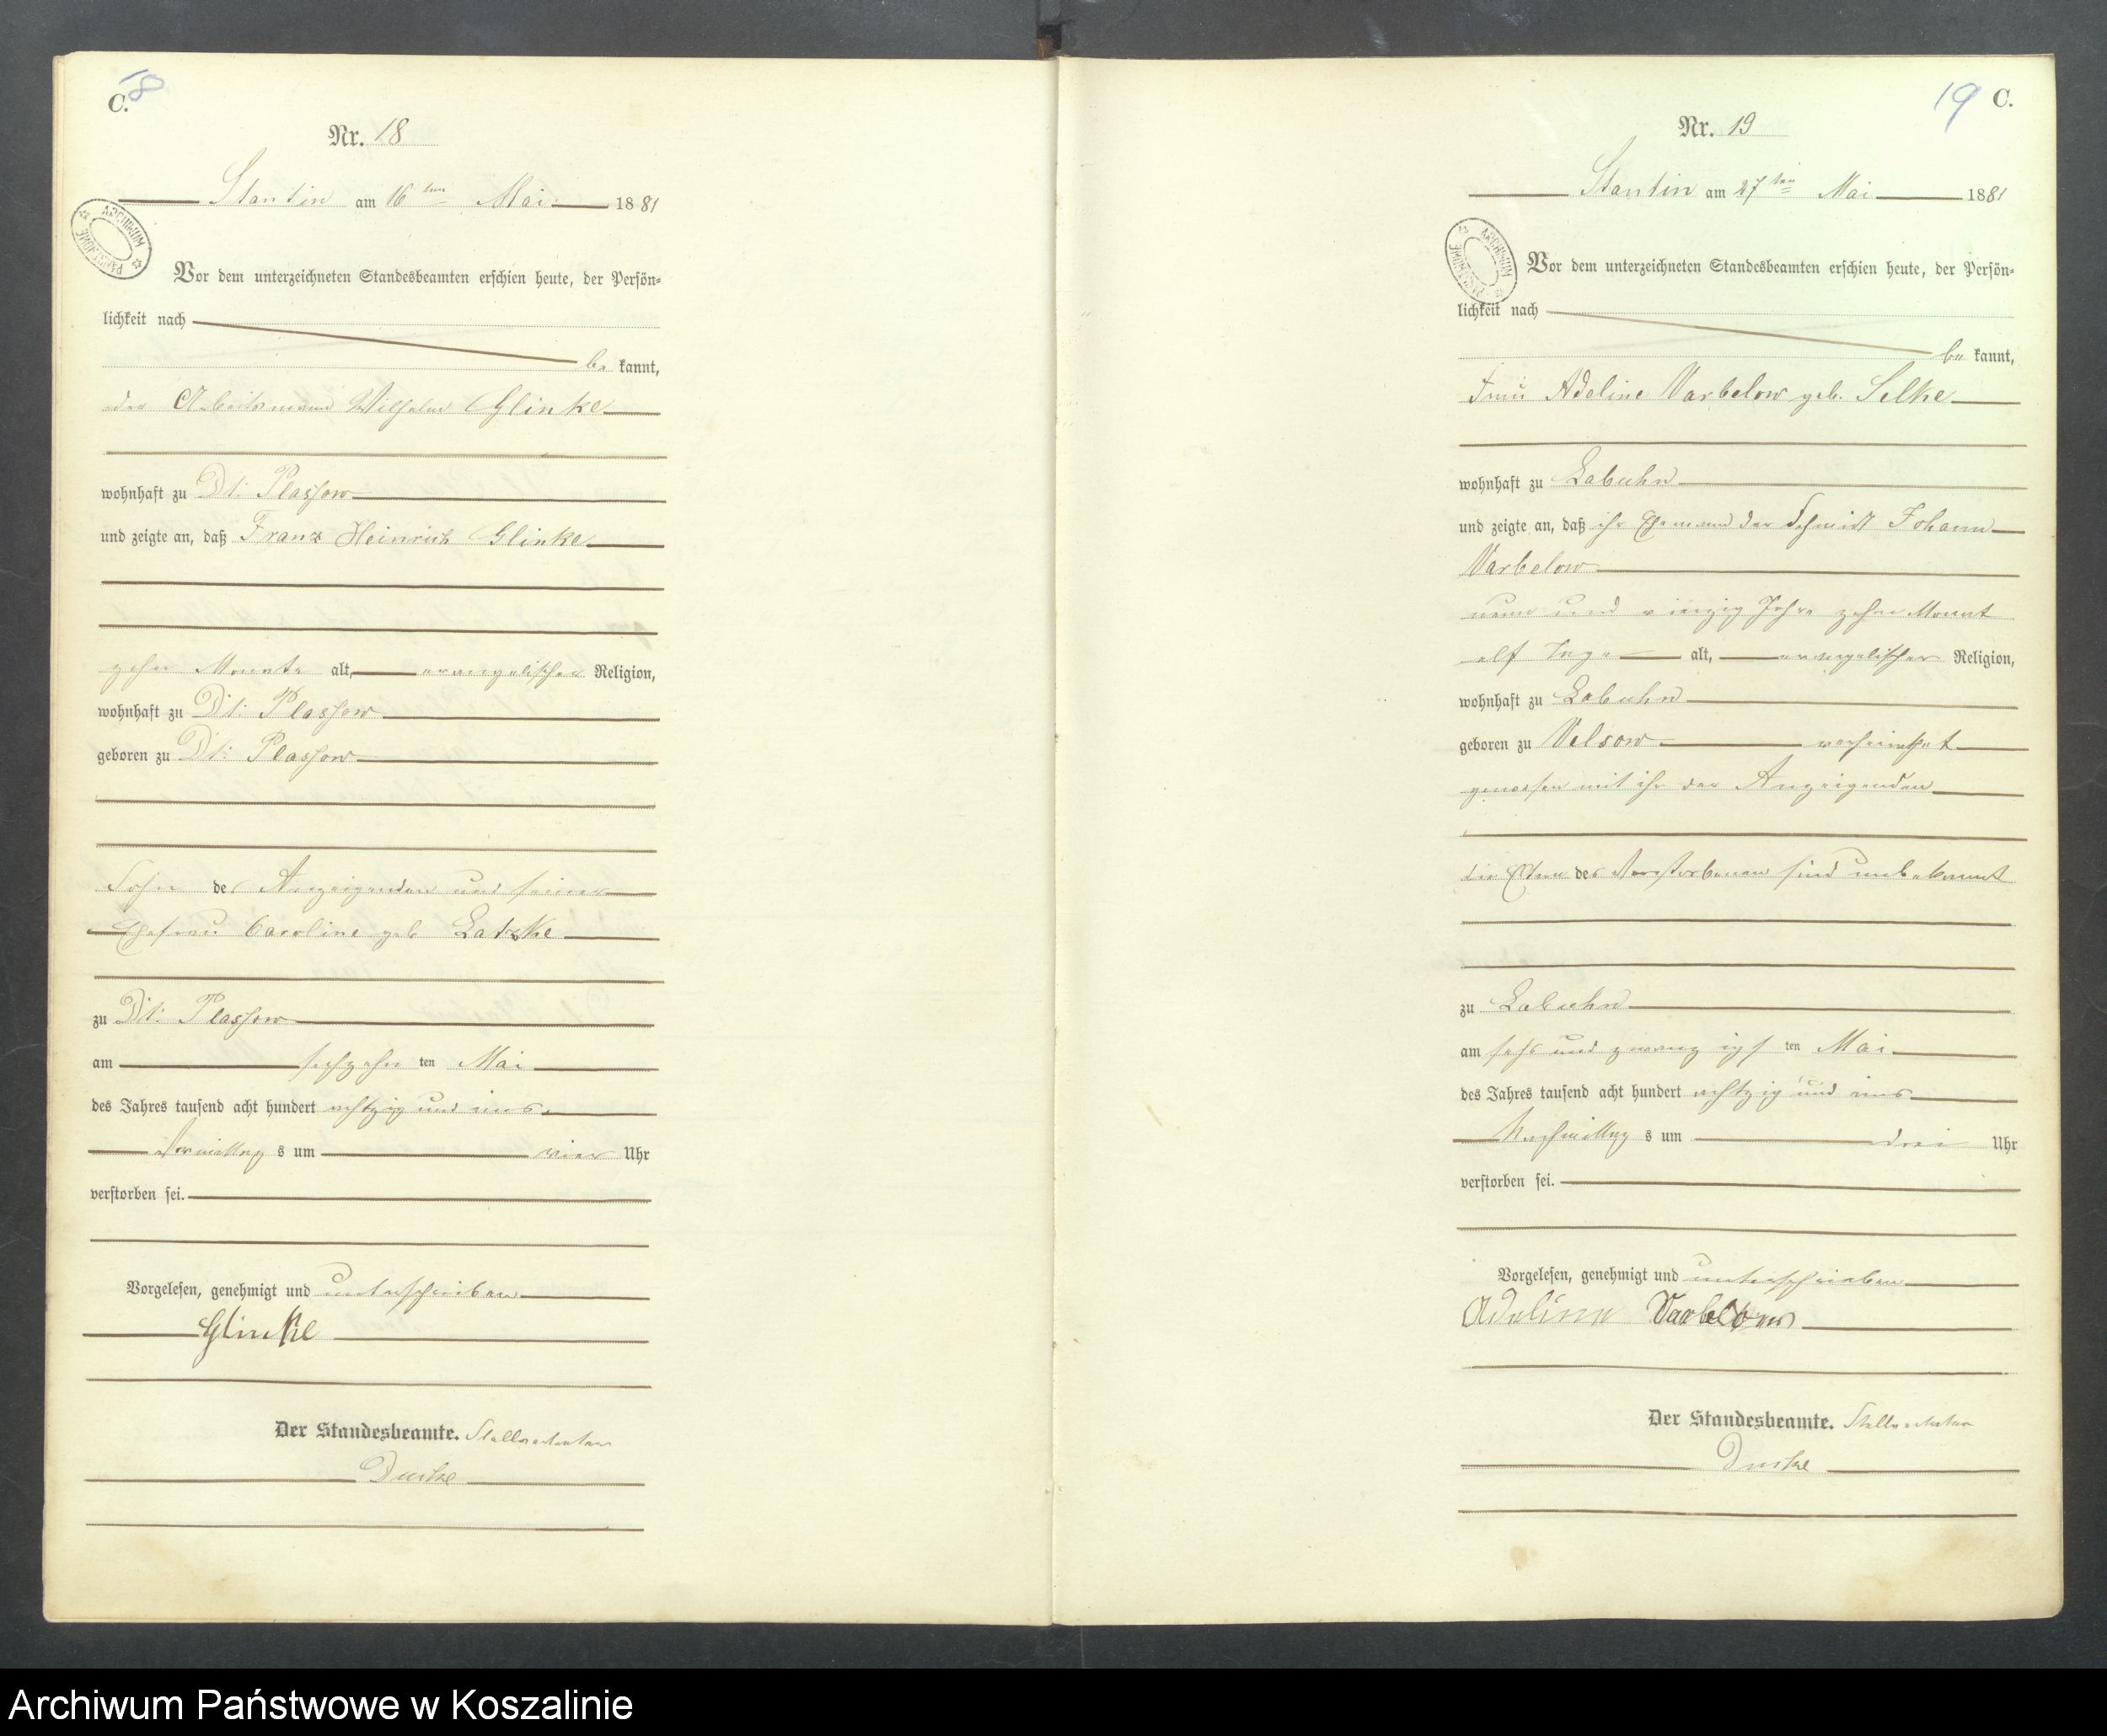 C. 18
Nr. 18
Stantin am 16ten Mai 1881
Vor dem unterzeichneten Standesbeamten erschien heute, der Persön-
lichkeit nach
be kannt,
der Arbeitsmann Wilhelm Glinke
wohnhaft zu Dt: Plassow
und zeigte an, daß Franz Heinrich Glinke
zehn Monate alt, evangelischer Religion,
wohnhaft zu Dt: Plassow
geboren zu Dt: Plassow
Sohn des Anzeigenden und seiner
Ehefrau Caroline geb Latzke
zu Dt: Plassow
am sechzehn ten Mai
des Jahres tausend acht hundert achtzig und eins
Vormittag s um vier Uhr
verstorben sei.
Vorgelesen, genehmigt und unterschrieben
Glinke
Der Standesbeamte. Stellvertreter
ARCHIWUM PAŃSTWOWE
19 C.
Nr. 19
Stantin am 27ten Mai 1881
Vor dem unterzeichneten Standesbeamten erschien heute, der Persön-
lichkeit nach
be kannt,
Frau Adeline Varbelow geb. Selke
wohnhaft zu Labuhn
und zeigte an, daß ihr Ehemann der Schmidt Johann
Varbelow
neun und vierzig Jahre zehn Monat
elf Tage alt, evangelischer Religion,
wohnhaft zu Labuhn
geboren zu Velsow verheirathet
gewesen mit ihr der Anzeigenden
die Eltern des Verstorbenen sind unbekannt
zu Labuhn
am sechs und zwanzigs ten Mai
des Jahres tausend acht hundert achtzig und eins
Nachmittag s um drei Uhr
verstorben sei.
Vorgelesen, genehmigt und unterschrieben
Adeline Varbelow
Der Standesbeamte. Stellvertreter
ARCHIWUM PAŃSTWOWE
Archiwum Państwowe w Koszalinie